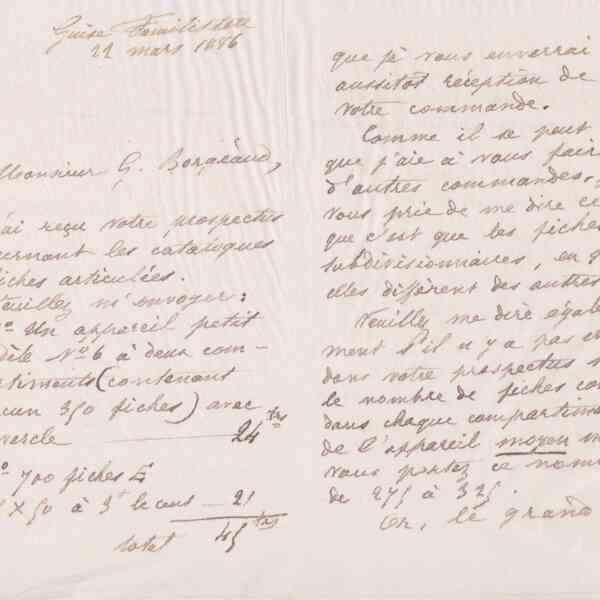 Guise Familistère
22 mars 1886
Monsieur G. Borgeaud,
ai reçu votre prospectus
cernant les catalogues
fiches articulées.
Veuillez m'envoyer :
1o Un appareil petit
dèle No 6 à deux com-
artiments (contenant
acun 350 fiches) avec
vercle 24 frs
o 700 fiches
X 50 à 3f le cent 21
total 45 frs
que je vous enverrai
aussitot réception de
votre commande.
Comme il se peut
que j'aie à vous fair
d'autres commandes,
vous prie de me dire ce
que c'est que les fiches
subdivisionnaires, en q
elles diffèrent des autres
Veuillez me dire égale
ment s'il n'y a pas er
dans votre prospectus s
le nombre de fiches con
dans chaque compartime
de l'appareil moyen m
vous portez ce nom
de 275 à 325.
Or, le grand